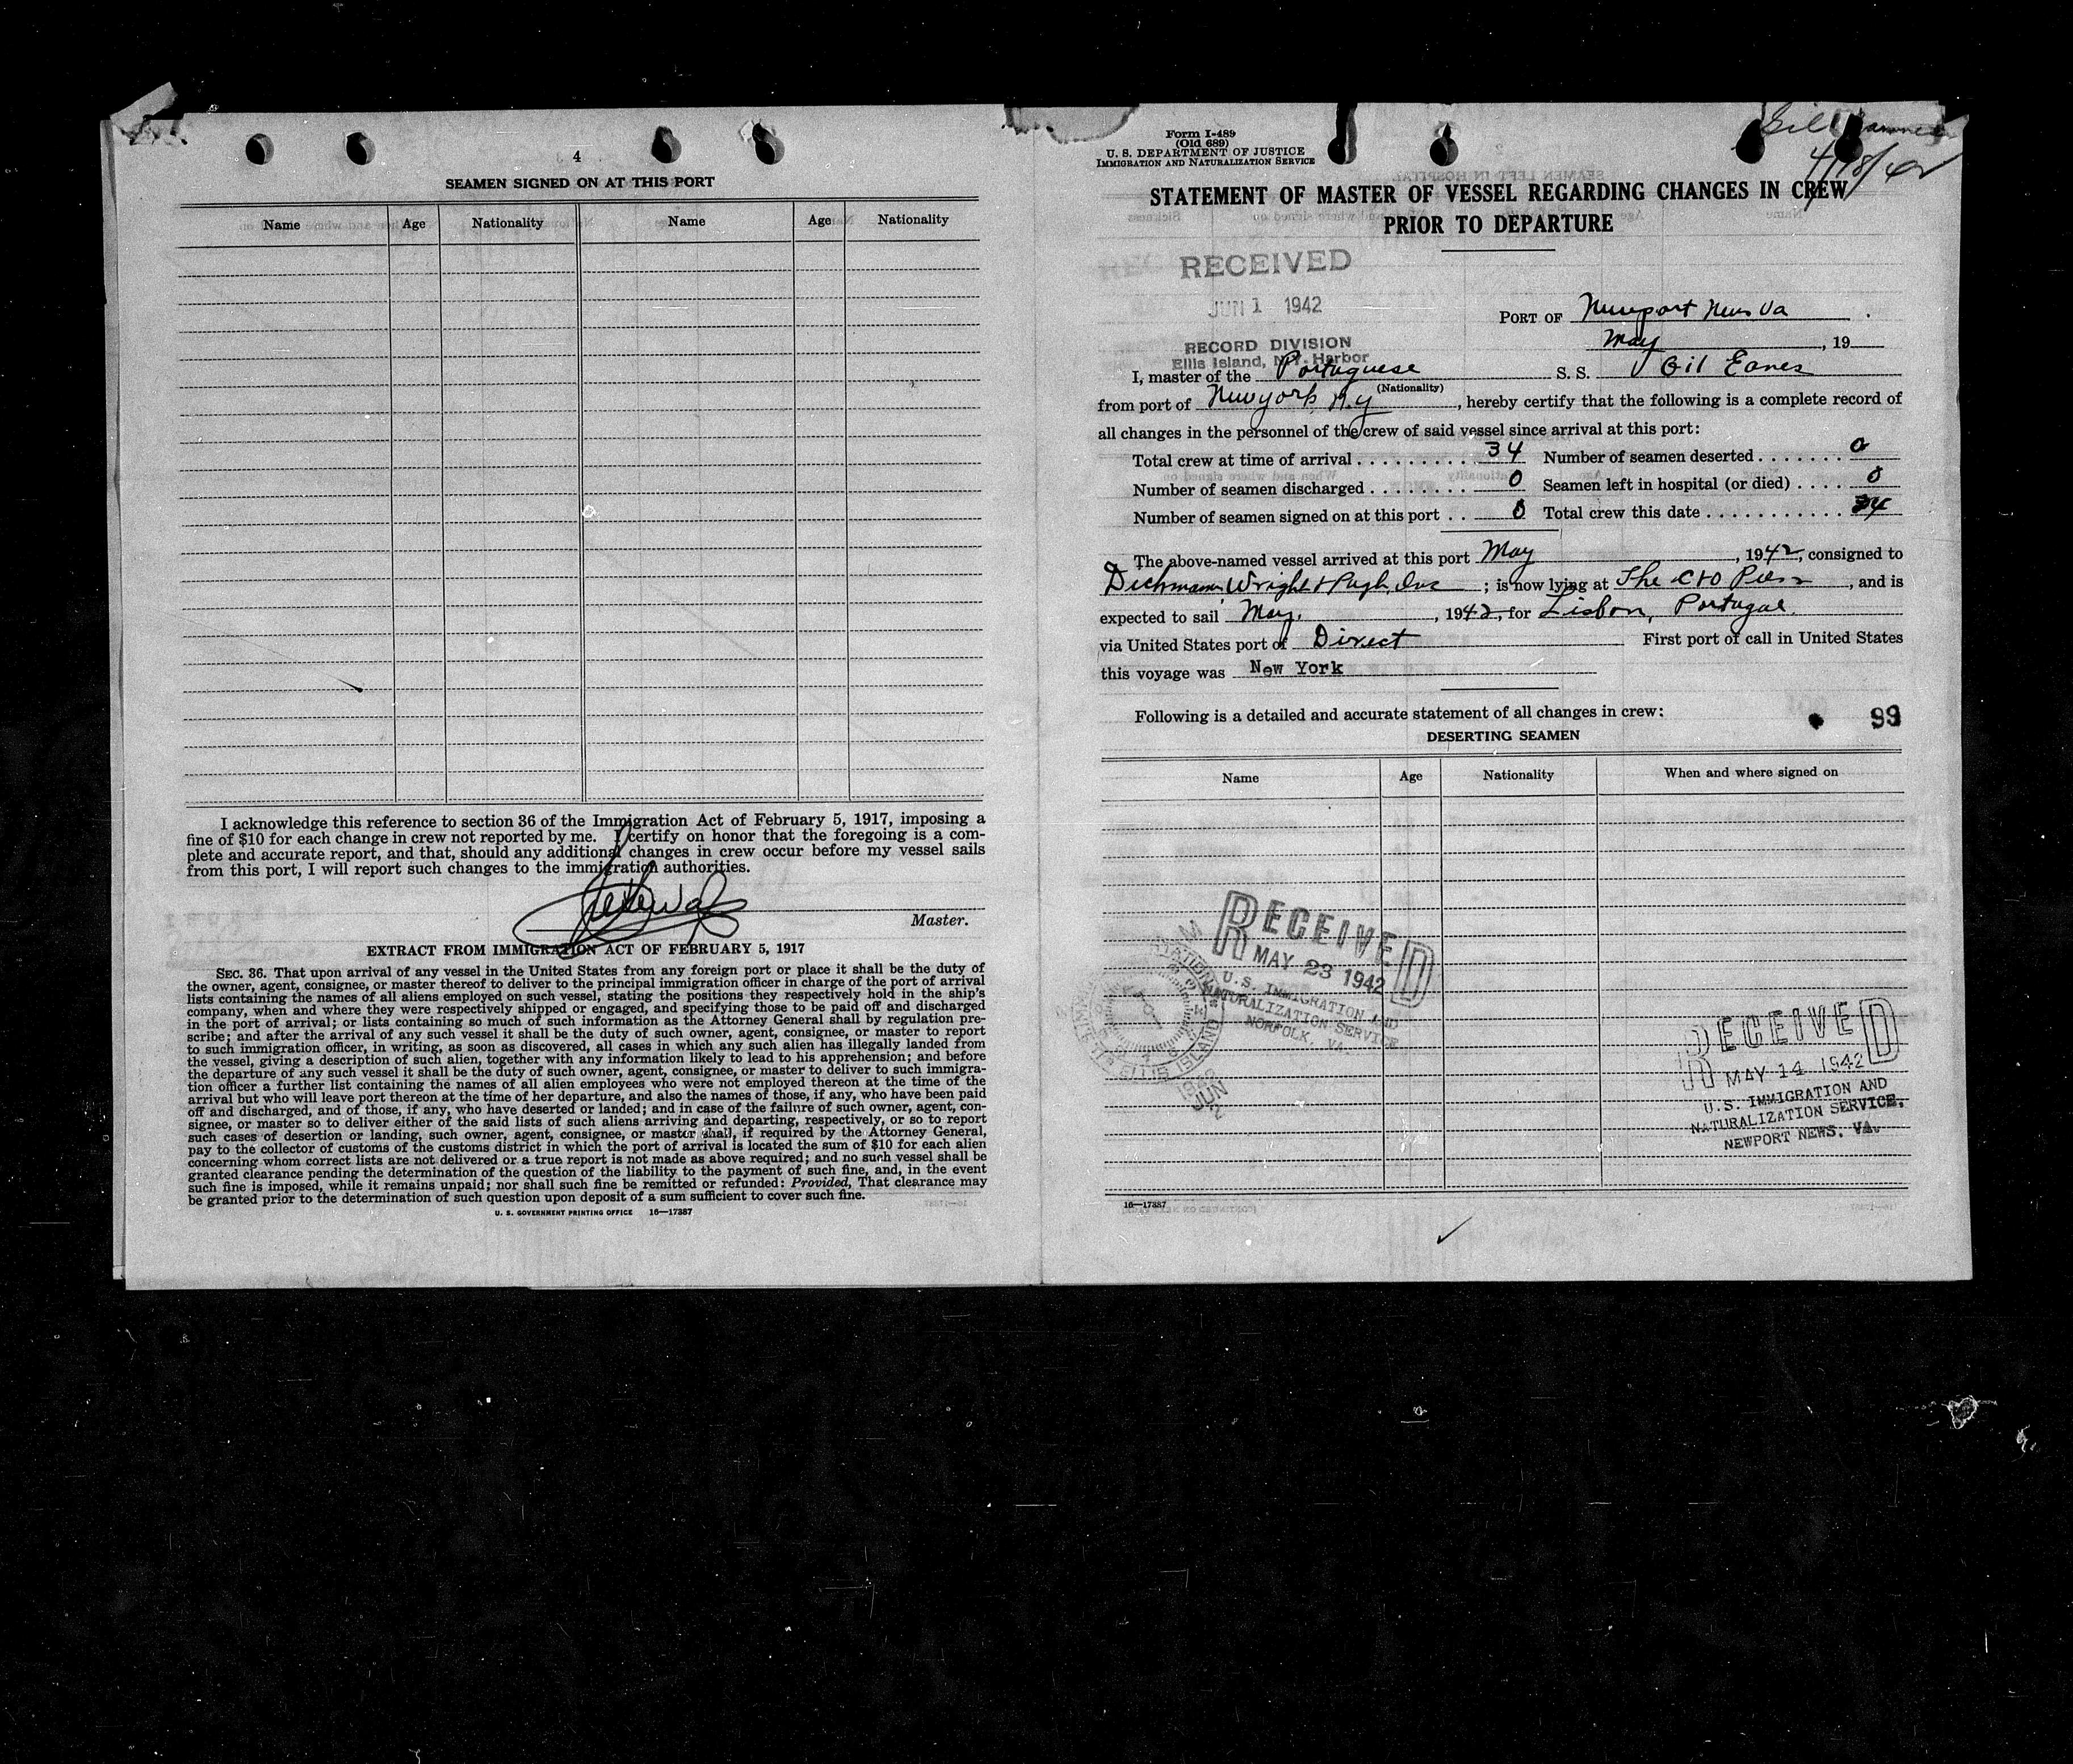 4
SEAMEN SIGNED ON AT THIS PORT
Name Age Nationality Name Age Nationality
I acknowledge this reference to section 36 of the Immigration Act of February 5, 1917, imposing a
fine of $10 for each change in crew not reported by me. I certify on honor that the foregoing is a com-
plete and accurate report, and that, should any additional changes in crew occur before my vessel sails
from this port, I will report such changes to the immigration authorities.
Master.
EXTRACT FROM IMMIGRATION ACT OF FEBRUARY 5, 1917
SEC. 36. That upon arrival of any vessel in the United States from any foreign port or place it shall be the duty of
the owner, agent, consignee, or master thereof to deliver to the principal immigration officer in charge of the port of arrival
lists containing the names of all aliens employed on such vessel, stating the positions they respectively hold in the ship's
company, when and where they were respectively shipped or engaged, and specifying those to be paid off and discharged
in the port of arrival; or lists containing so much of such information as the Attorney General shall by regulation pre-
scribe; and after the arrival of any such vessel it shall be the duty of such owner, agent, consignee, or master to report
to such immigration officer, in writing, as soon as discovered, all cases in which any such alien has illegally landed from
the vessel, giving a description of such alien, together with any information likely to lead to his apprehension; and before
the departure of any such vessel it shall be the duty of such owner, agent, consignee, or master to deliver to such immigra-
tion officer a further list containing the names of all alien employees who were not employed thereon at the time of the
arrival but who will leave port thereon at the time of her departure, and also the names of those, if any, who have been paid
off and discharged, and of those, if any, who have deserted or landed; and in case of the failure of such owner, agent, con-
signee, or master so to deliver either of the said lists of such aliens arriving and departing, respectively, or so to report
such cases of desertion or landing, such owner, agent, consignee, or master shall, if required by the Attorney General,
pay to the collector of customs of the customs district in which the port of arrival is located the sum of $10 for each alien
concerning whom correct lists are not delivered or a true report is not made as above required; and no such vessel shall be
granted clearance pending the determination of the question of the liability to the payment of such fine, and, in the event
such fine is imposed, while it remains unpaid; nor shall such fine be remitted or refunded: Provided, That clearance may
be granted prior to the determination of such question upon deposit of a sum sufficient to cover such fine.
U. S. GOVERNMENT PRINTING OFFICE 16—17387
Form I-489
(Old 689)
U. S. DEPARTMENT OF JUSTICE
IMMIGRATION AND NATURALIZATION SERVICE
4/18/42
STATEMENT OF MASTER OF VESSEL REGARDING CHANGES IN CREW
PRIOR TO DEPARTURE
RECEIVED
JUN 1 1942
RECORD DIVISION
Ellis Island, N.Y. Harbor
PORT OF Newport News Va
May, 19
I, master of the Portuguese S. S. Gil Eanes
(Nationality)
from port of New york, N.y, hereby certify that the following is a complete record of
all changes in the personnel of the crew of said vessel since arrival at this port:
Total crew at time of arrival 34 Number of seamen deserted 0
Number of seamen discharged 0 Seamen left in hospital (or died) 0
Number of seamen signed on at this port 0 Total crew this date 34
The above-named vessel arrived at this port May, 1942, consigned to
Dichmann Wright & Pugh, Inc; is now lying at The C&O Piers, and is
expected to sail May, 1942, for Lisbon, Portugal.
via United States port of Direct First port of call in United States
this voyage was New York
Following is a detailed and accurate statement of all changes in crew: 99
DESERTING SEAMEN
Name Age Nationality When and where signed on
RECEIVED
MAY 23 1942
U.S. IMMIGRATION AND
NATURALIZATION SERVICE
NORFOLK, VA.
ELLIS ISLAND
1942
JUN
2
RECEIVED
MAY 14 1942
U.S. IMMIGRATION AND
NATURALIZATION SERVICE,
NEWPORT NEWS, VA.
16—17387